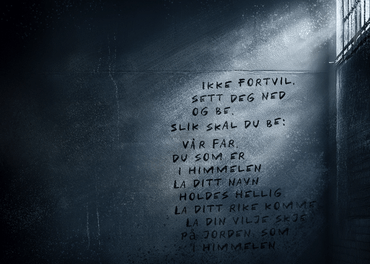 IKKE FORTVIL.
SETT DEG NED
OG BE.
SLIK SKAL DU BE:
VÅR FAR,
DU SOM ER
I HIMMELEN.
LA DITT NAVN
HOLDES HELLIG.
LA DITT RIKE KOMME
LA DIN VILJE SKJE
PÅ JORDEN, SOM
I HIMMELEN